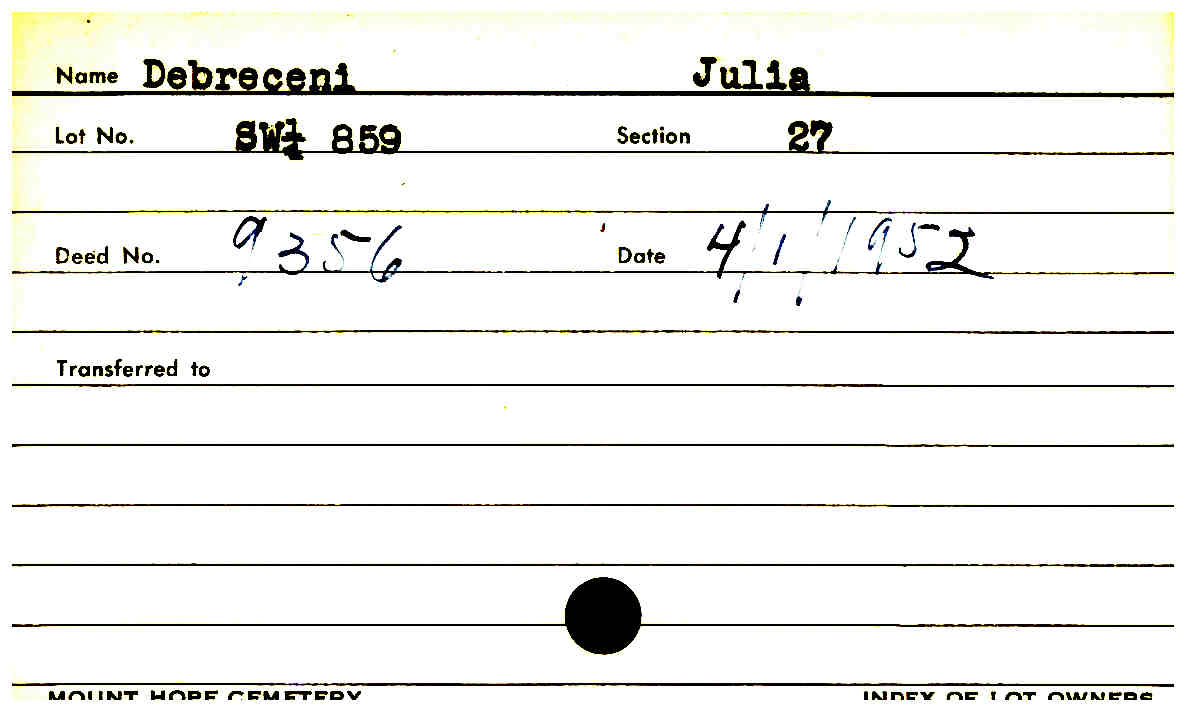 Name Debreceni Julia
Lot No. SW¼ 859 Section 27
Deed No. 9356 Date 4/1/1952
Transferred to
MOUNT HOPE CEMETERY INDEX OF LOT OWNERS